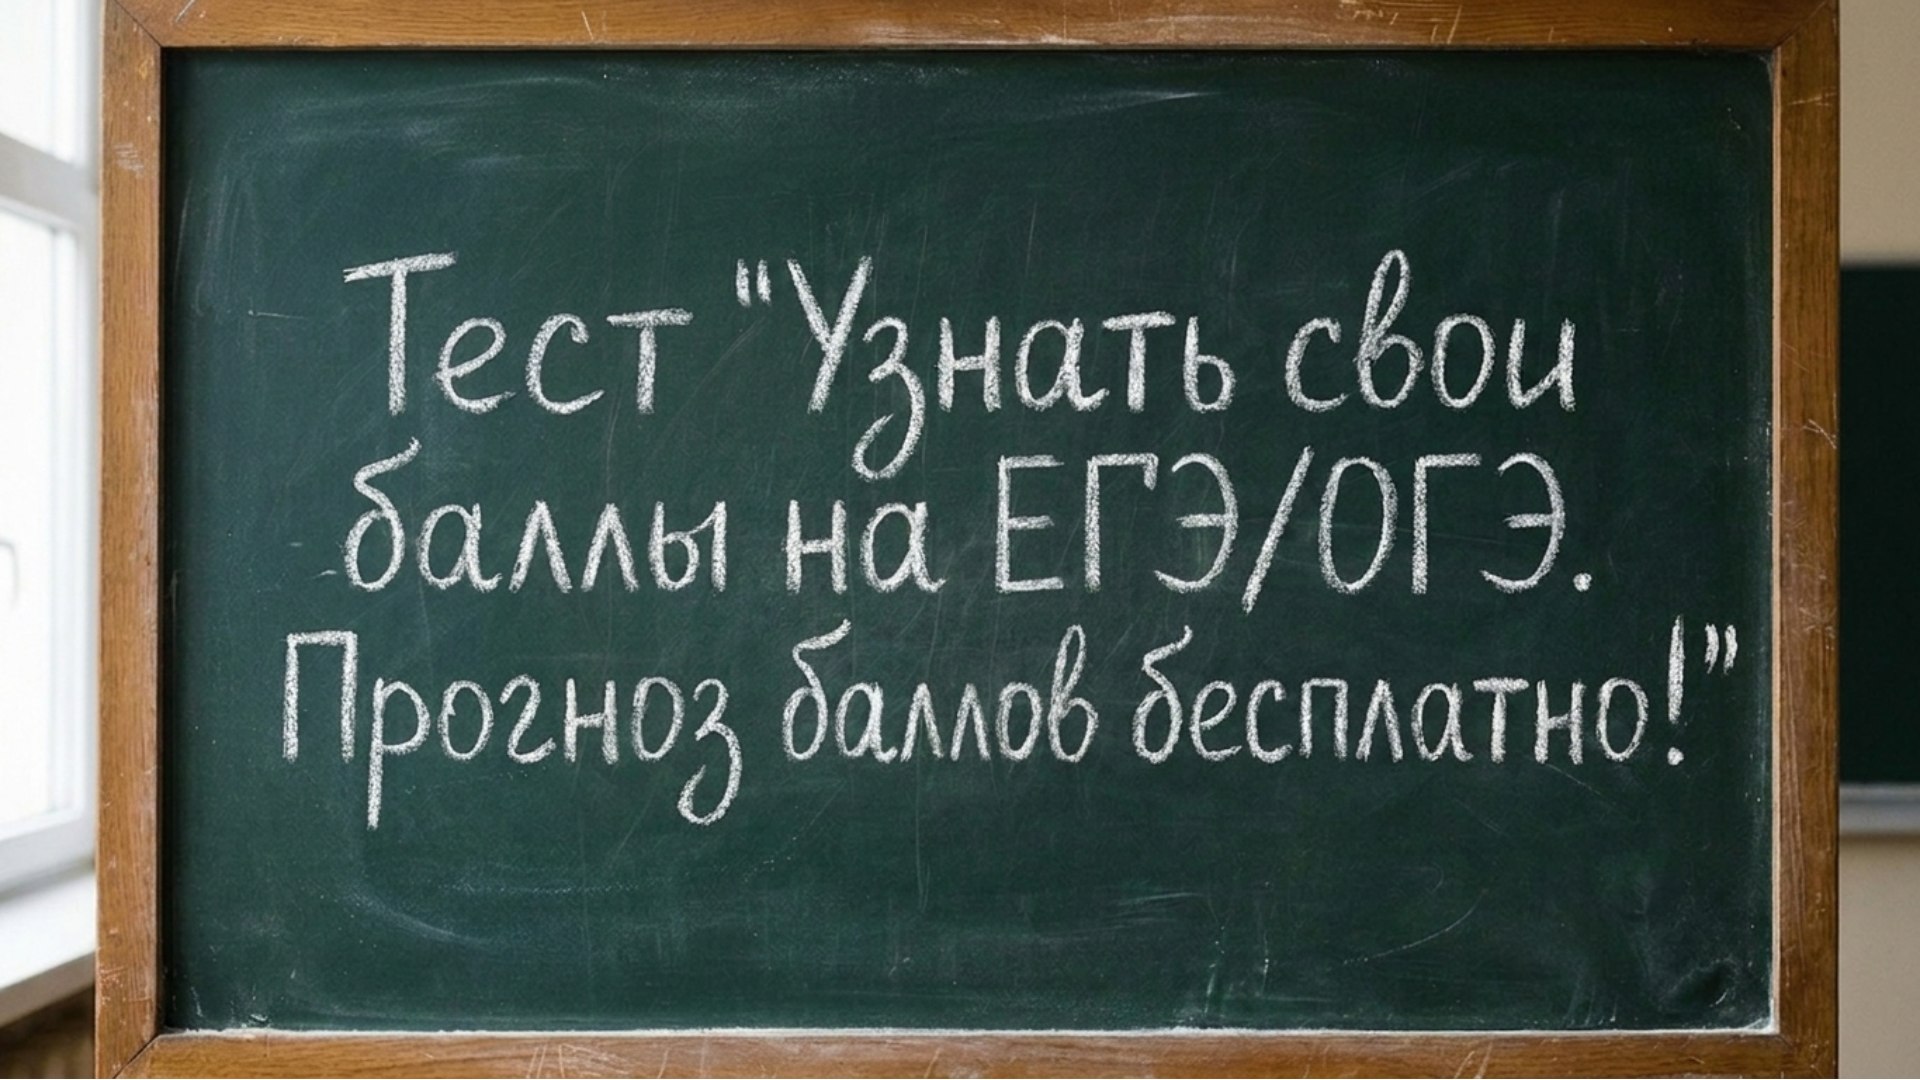 Тест "Узнать свои
баллы на ЕГЭ/ОГЭ.
Прогноз баллов бесплатно!"